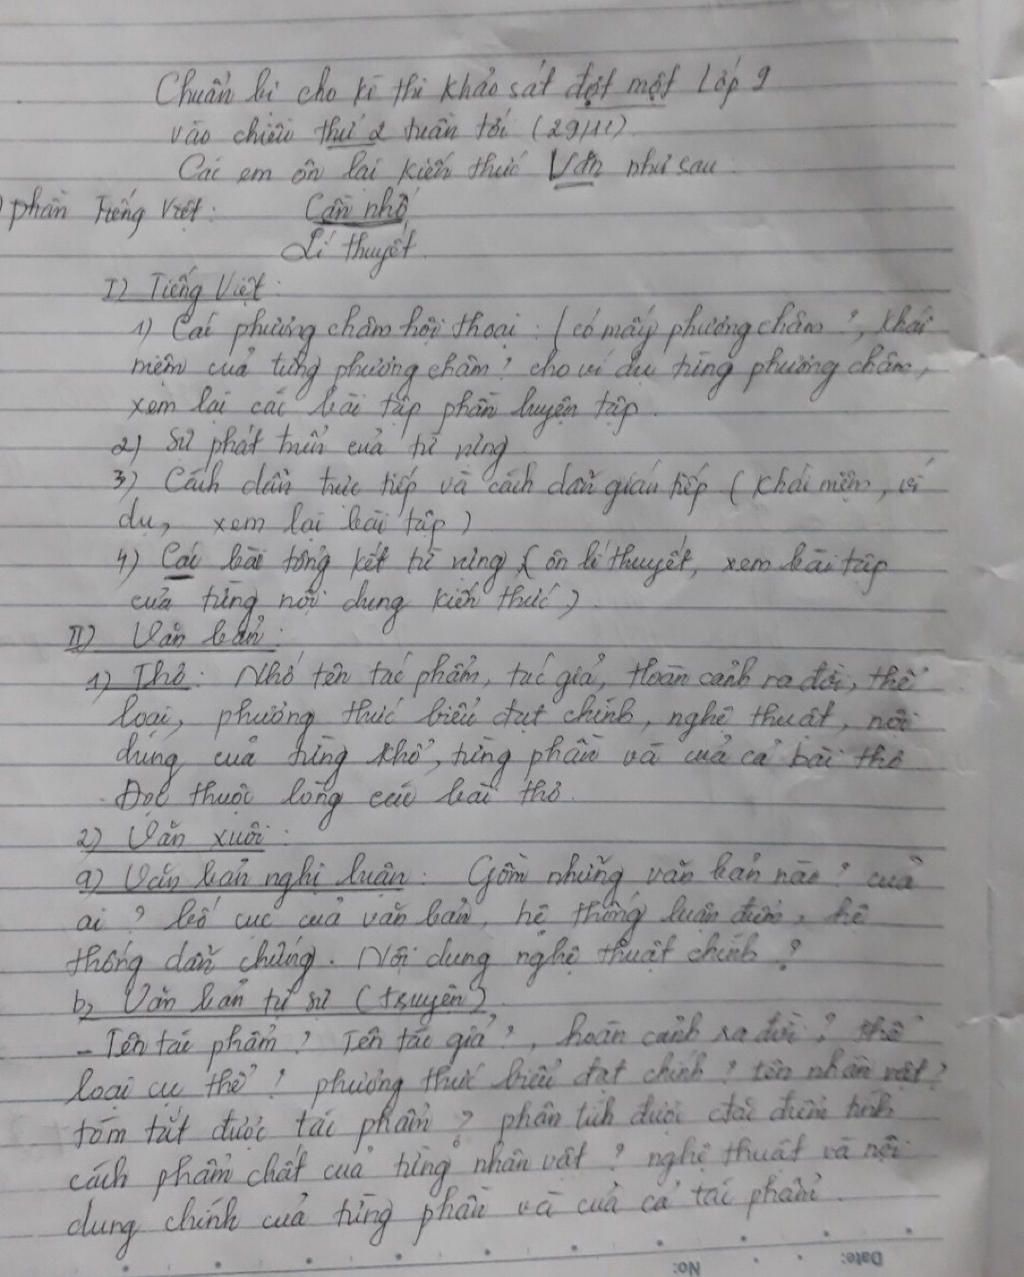 Chuẩn bị cho kì thi khảo sát đợt một Lớp 9
vào chiều thứ 2 tuần tới (29/11).
Các em ôn lại kiến thức Văn như sau:
) phần Tiếng Việt: Cần nhớ
Lí thuyết.
I) Tiếng Việt:
1) Các phương châm hội thoại: (có mấy phương châm?, khái
niệm của từng phương châm? cho ví dụ từng phương châm,
xem lại các bài tập phần luyện tập.
2) Sự phát triển của từ vựng
3) Cách dẫn trực tiếp và cách dẫn gián tiếp (khái niệm, ví
dụ, xem lại bài tập)
4) Các bài tổng kết từ vựng (ôn lí thuyết, xem bài tập
của từng nội dung kiến thức)
II) Văn bản:
1) Thơ: Nhớ tên tác phẩm, tác giả, hoàn cảnh ra đời, thể
loại, phương thức biểu đạt chính, nghệ thuật, nội
dung của từng khổ, từng phần và của cả bài thơ
. Đọc thuộc lòng các bài thơ.
2) Văn xuôi:
a) Văn bản nghị luận: Gồm những văn bản nào? của
ai? bố cục của văn bản, hệ thống luận điểm, hệ
thống dẫn chứng. Nội dung nghệ thuật chính?
b, Văn bản tự sự (truyện)
- Tên tác phẩm? Tên tác giả?, hoàn cảnh ra đời? thể
loại cụ thể? phương thức biểu đạt chính? tên nhân vật?
tóm tắt được tác phẩm? phân tích được đặc điểm tính
cách phẩm chất của từng nhân vật? nghệ thuật và nội
dung chính của từng phần và của cả tác phẩm.
No: Date: